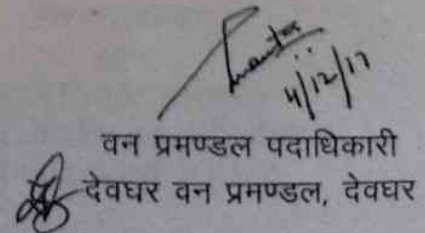 4/12/17
वन प्रमण्डल पदाधिकारी
देवघर वन प्रमण्डल, देवघर